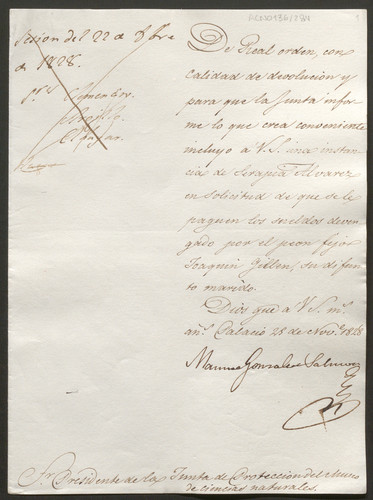 Sesion del 22 de Dbre
de 1828.
De Real orden, con
calidad de devolucion y
para que la Junta infor
me lo que crea conveniente
incluyo a V.S. una instan
cia de Serapia Alvarez
en solicitud de que se le
paguen los sueldos deven
gado por el peon fijo
Joaquin Gillen, su difun
to marido.
Dios gue a V.S. ms.
ans. Palacio 28 de Novre. 1828
Manuel Gonzalez Salmon
Sr. Presidente de la Junta de Proteccion del Museo
de ciencias naturales.